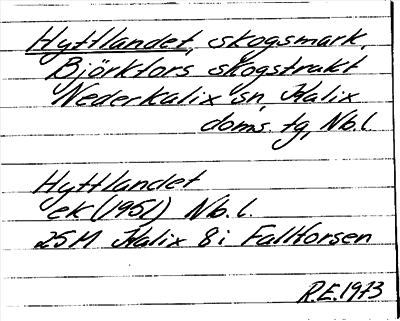 Hyttlandet, skogsmark,
Björkfors skogstrakt
Nederkalix sn, Kalix
doms. tg, Nb.l.
Hyttlandet
ek (1951) Nb. l.
25M Kalix 8i Fallforsen
R.E. 1973